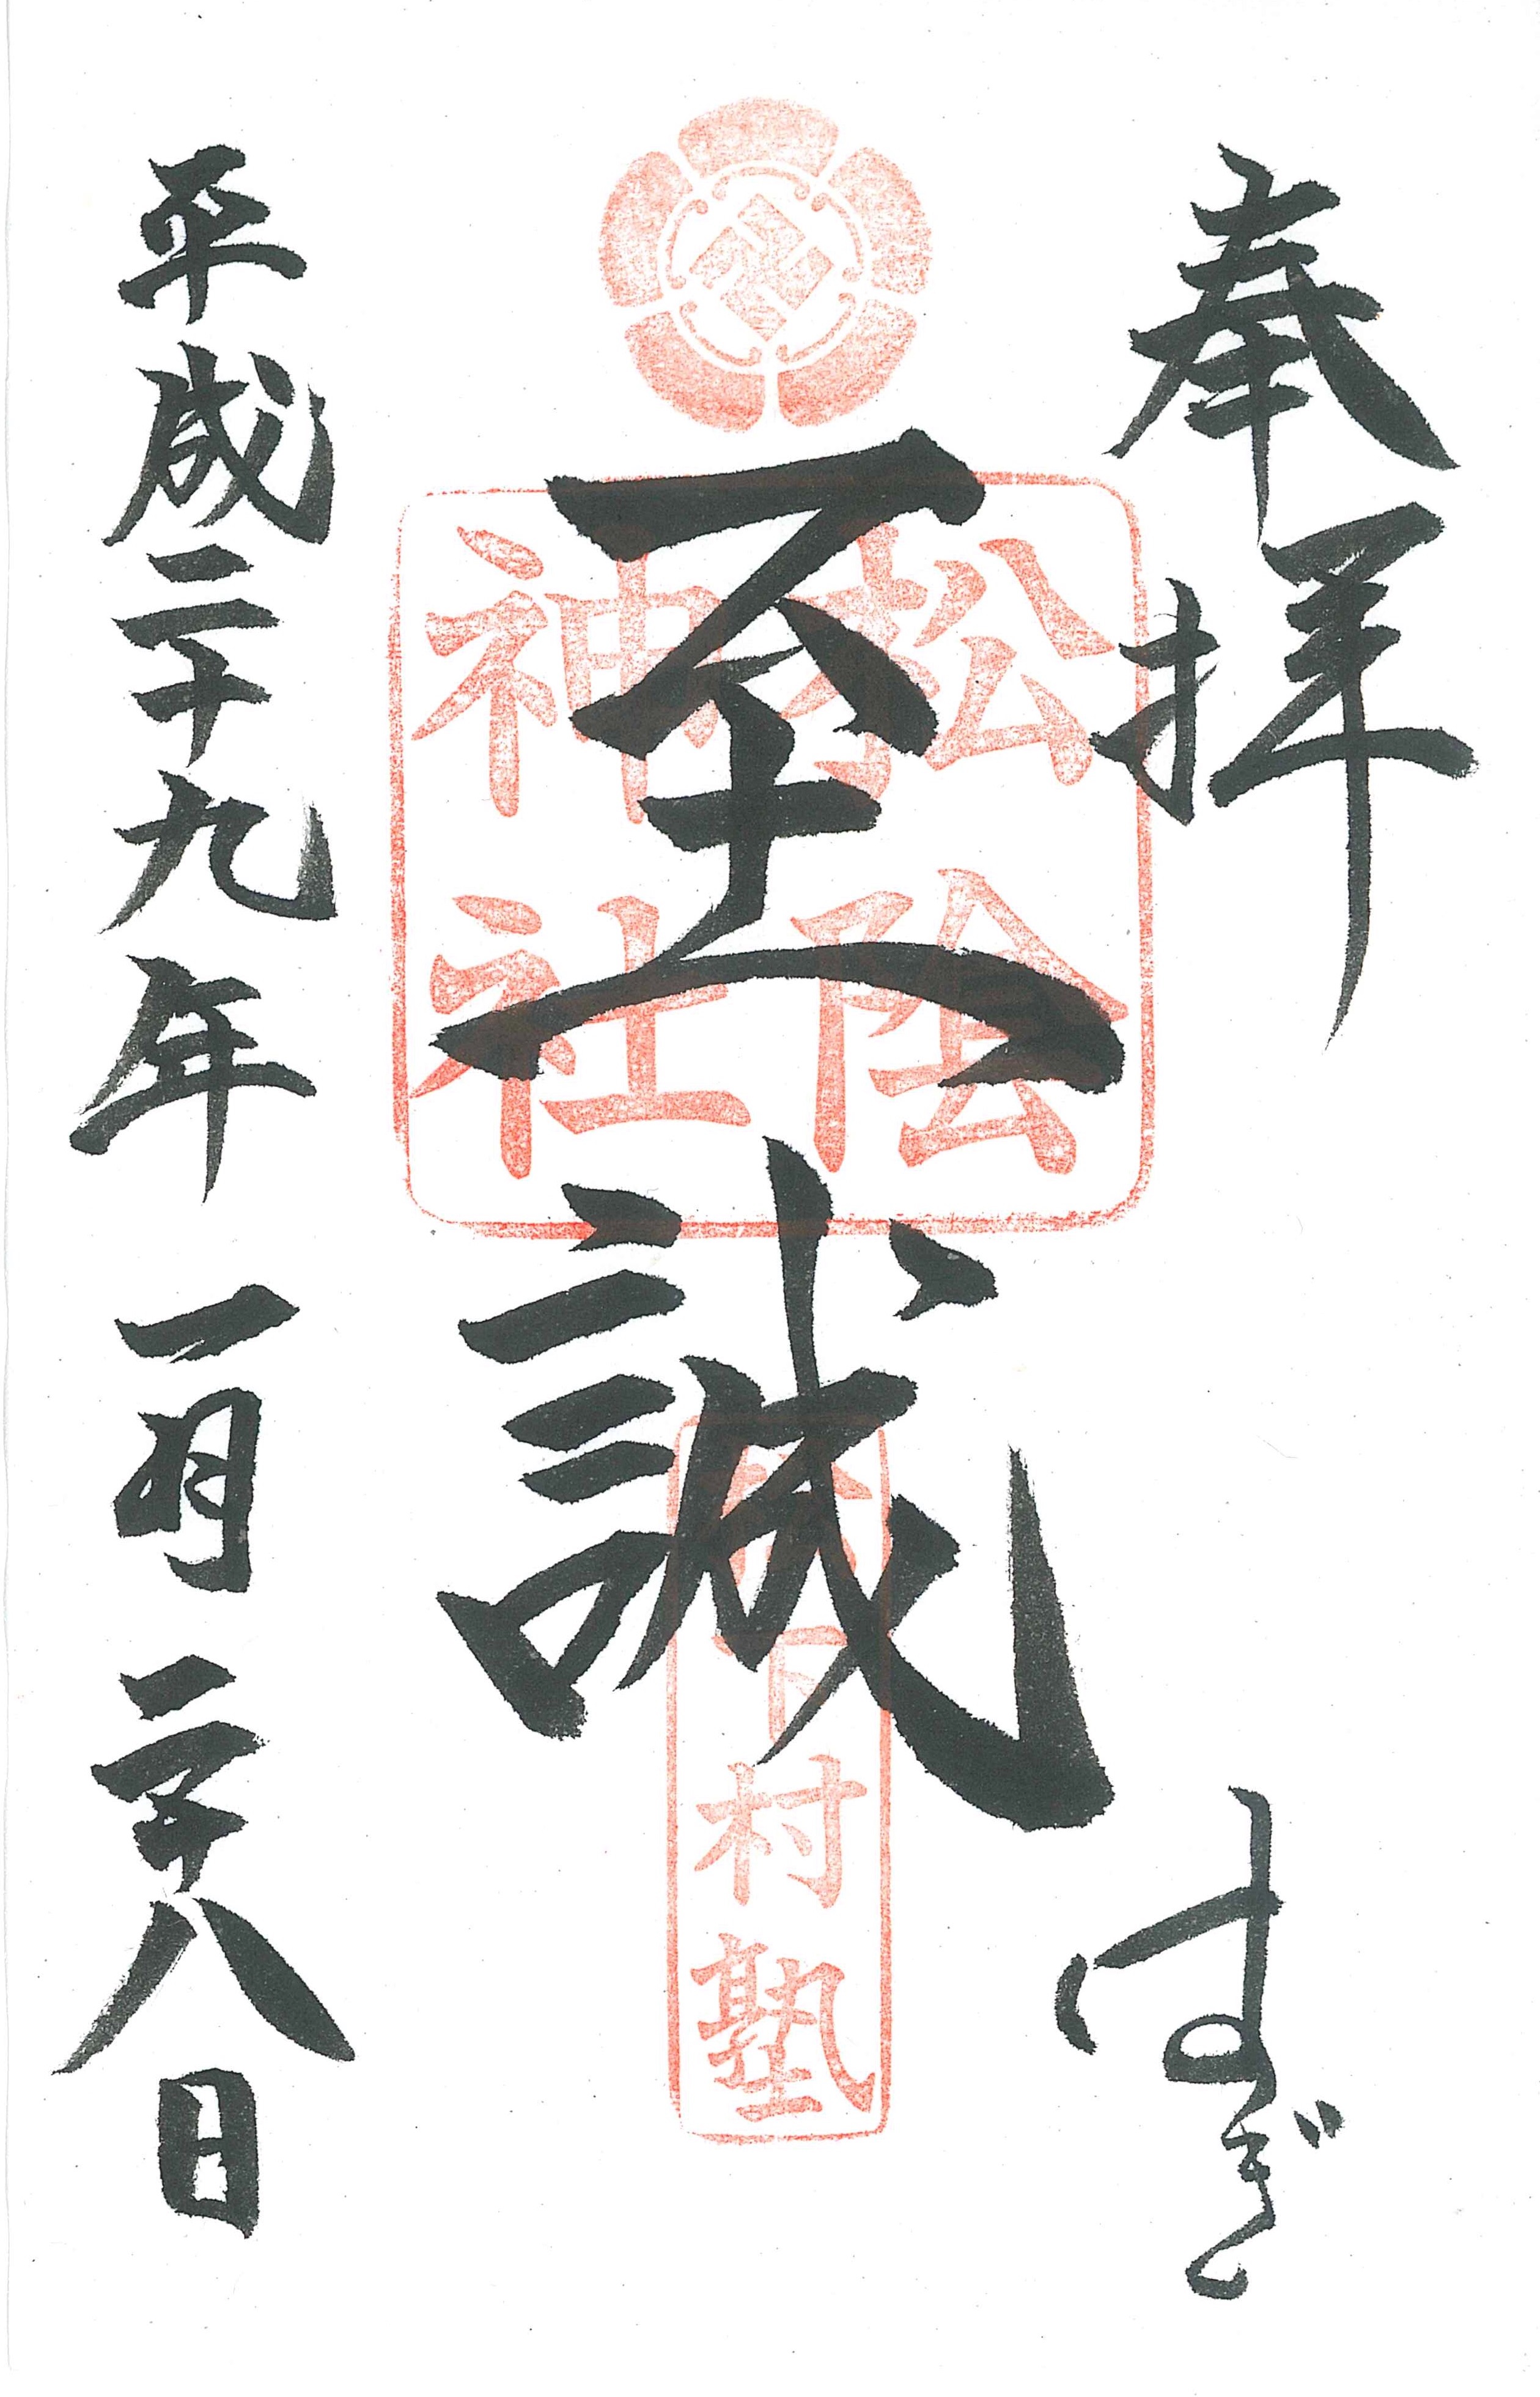 奉拝
はぎ
至誠
松陰
神社
松下村塾
平成二十九年一月二十八日